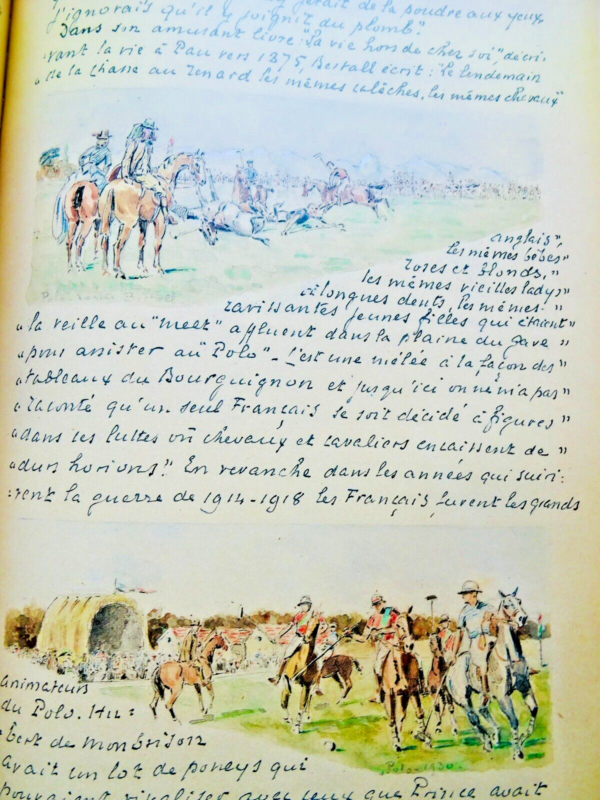 jetait de la poudre aux yeux
J'ignorais qu'il y joignit du plomb".
Dans son amusant livre "la vie hors de chez soi", décri-
-vant la vie à Pau vers 1875, Bertall écrit : "le lendemain
"de la chasse au renard les mêmes calèches, les mêmes chevaux"
anglais",
les mêmes bébés"
roses et blonds,"
les mêmes vieilles ladys"
à longues dents, les mêmes "
ravissantes jeunes filles qui étaient"
"la veille au "meet" affluent dans la plaine du gave "
"pour assister au "Polo" - C'est une mêlée à la façon des "
"tableaux du Bourguignon et jusqu'ici on ne m'a pas"
"raconté qu'un seul Français se soit décidé à figurer "
"dans ces luttes où chevaux et cavaliers encaissent de "
"durs horions". En revanche dans les années qui suivi:
:rent la guerre de 1914-1918 les Français furent les grands
animateurs
du Polo. Hu=
bert de Monbrison
avait un lot de poneys qui
pouvaient rivaliser avec ceux que Prince avait
Polo - 1930